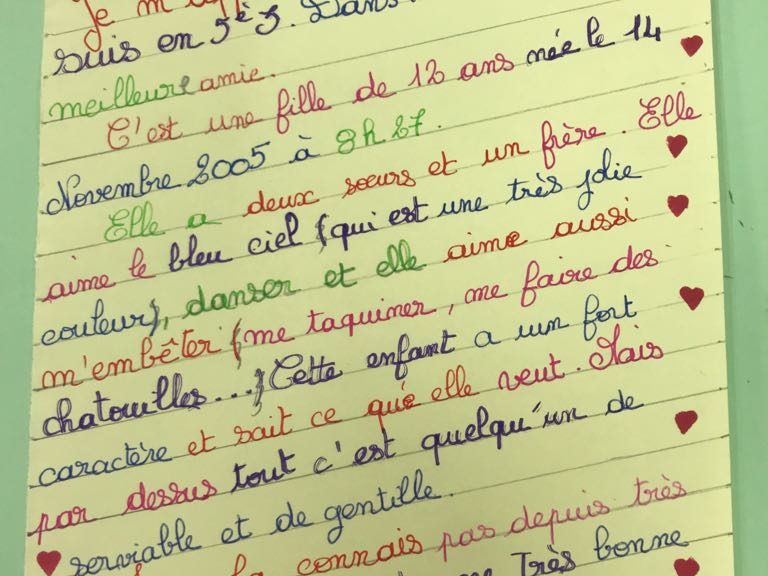 Je m'
suis en 5è5. Dans
meilleure amie.
C'est une fille de 12 ans née le 14
Novembre 2005 à 8h27.
Elle a deux sœurs et un frère. Elle
aime le bleu ciel (qui est une très jolie
couleur), danser et elle aime aussi
m'embêter (me taquiner, me faire des
chatouilles...) Cette enfant a un fort
caractère et sait ce que elle veut. Mais
par dessus tout c'est quelqu'un de
serviable et de gentille.
la connais pas depuis très
Très bonne